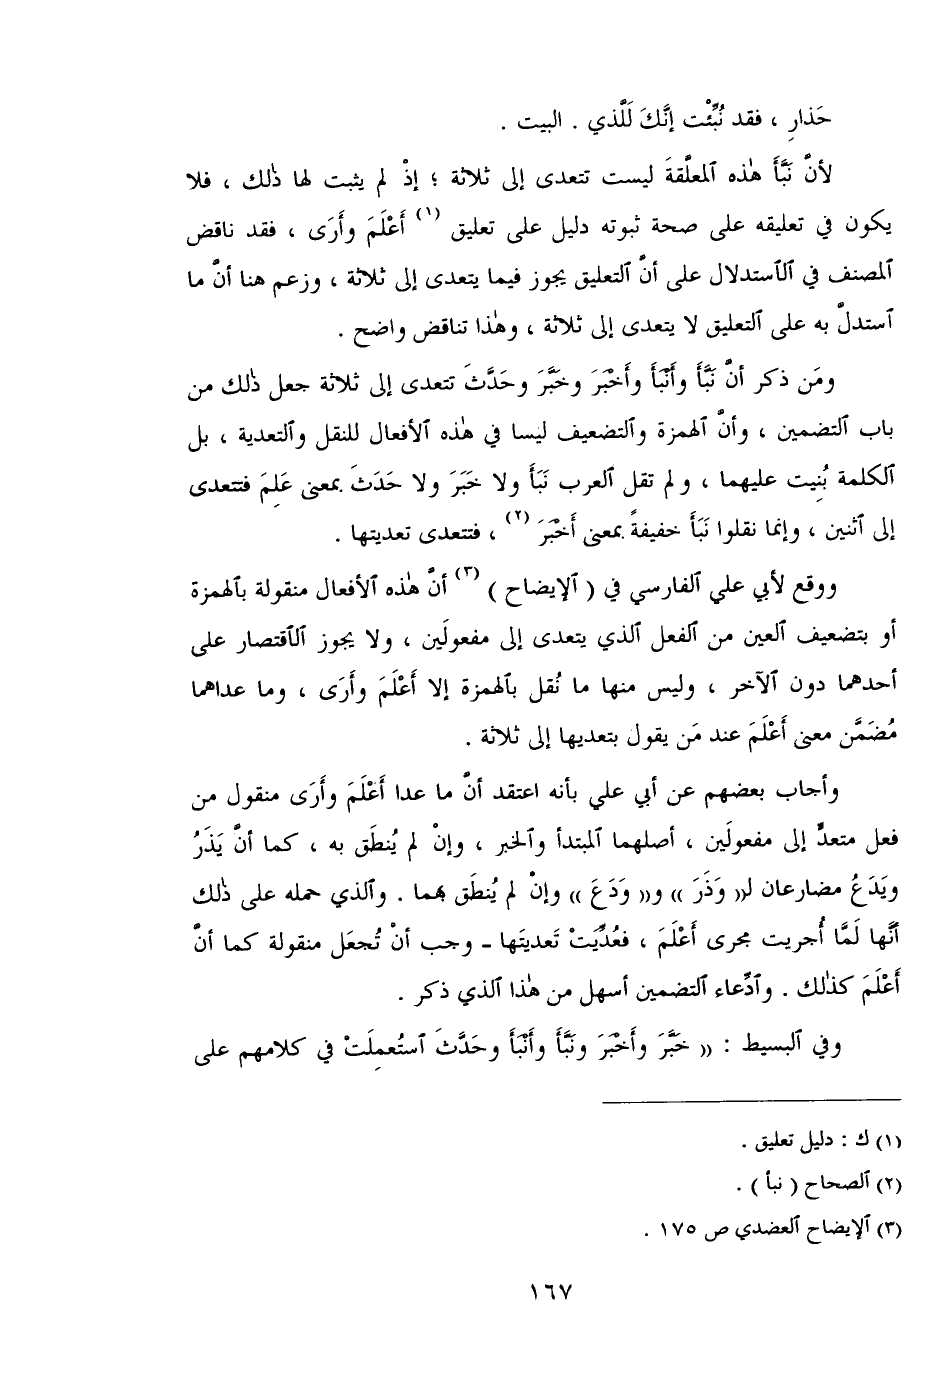 حَذارِ ، فقد نُبِّئْت إنَّكَ لَلَّذي . البيت .
لأنَّ نَبَّأَ هٰذه ٱلمعلَّقةَ ليست تتعدى إلى ثلاثة ؛ إذْ لم يثبت لها ذٰلك ، فلا
يكون في تعليقه على صحة ثبوته دليل على تعليق (١) أَعْلَمَ وأَرَى ، فقد ناقض
ٱلمصنف في ٱلٱستدلال على أنَّ ٱلتعليق يجوز فيما يتعدى إلى ثلاثة ، وزعم هنا أنَّ ما
ٱستدلَّ به على ٱلتعليق لا يتعدى إلى ثلاثة ، وهٰذا تناقض واضح .
ومَن ذكر أنَّ نَبَّأَ وأَنْبَأَ وأَخْبَرَ وخَبَّرَ وحَدَّثَ تتعدى إلى ثلاثة جعل ذٰلك من
باب ٱلتضمين ، وأنَّ ٱلهمزة وٱلتضعيف ليسا في هٰذه ٱلأفعال للنقل وٱلتعدية ، بل
ٱلكلمة بُنِيت عليهما ، ولم تقل ٱلعرب نَبَأَ ولا خَبَرَ ولا حَدَثَ بمعنى عَلِمَ فتتعدى
إلى ٱثنين ، وإنما نقلوا نَبَأَ خفيفةً بمعنى أَخْبَرَ (٢) ، فتتعدى تعديتها .
ووقع لأبي علي ٱلفارسي في ( ٱلإيضاح ) (٣) أنَّ هٰذه ٱلأفعال منقولة بٱلهمزة
أو بتضعيف ٱلعين من ٱلفعل ٱلذي يتعدى إلى مفعولَين ، ولا يجوز ٱلٱقتصار على
أحدهما دون ٱلآخر ، وليس منها ما نُقل بٱلهمزة إلا أَعْلَمَ وأَرَى ، وما عداهما
مُضَمَّن معنى أَعْلَمَ عند مَن يقول بتعديها إلى ثلاثة .
وأجاب بعضهم عن أبي علي بأنه اعتقد أنَّ ما عدا أَعْلَمَ وأَرَى منقول من
فعل متعدٍّ إلى مفعولَين ، أصلهما ٱلمبتدأ وٱلخبر ، وإنْ لم يُنطَق به ، كما أنَّ يَذَرُ
ويَدَعُ مضارعان لـ« وَذَرَ » و« وَدَعَ » وإنْ لم يُنطَق بهما . وٱلذي حمله على ذٰلك
أنَّها لَمَّا أُجريت مجرى أَعْلَمَ ، فعُدِّيَتْ تَعديتَها - وجب أنْ تُجعَل منقولة كما أنَّ
أَعْلَمَ كذٰلك . وٱدِّعاء ٱلتضمين أسهل من هٰذا ٱلذي ذكر .
وفي ٱلبسيط : « خَبَّرَ وأَخْبَرَ ونَبَّأَ وأَنْبَأَ وحَدَّثَ ٱستُعمِلَتْ في كلامهم على
(١) ك : دليل تعليق .
(٢) ٱلصحاح ( نبأ ) .
(٣) ٱلإيضاح ٱلعضدي ص ١٧٥ .
١٦٧